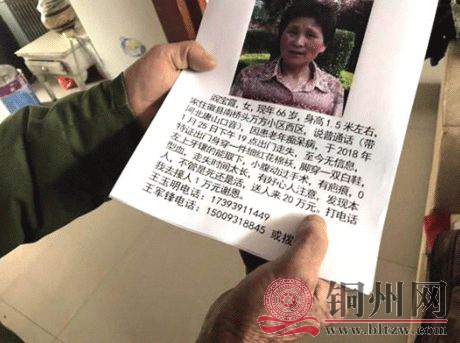 闫宝霞，女，现年66岁，身高1.5米左右，
家住徽县南桥头万方小区西区，说普通话（带
河北唐山口音），因患老年痴呆病，于2018年
1月25日下午19点出门走失，至今无信息，
特征出门身穿一件细红花棉袄，脚穿一双白鞋，
左上牙镶的能取下，小腹动过手术，有疤痕，O
型血，走失时间太长，有好心人注意，发现本
人，不管是死还是活，送人来20万元。打电话
来去接人1万元谢恩。
王玉明电话：17393911449
王军锋电话：15009318845 或拨
铜州网
www.bltzw.com